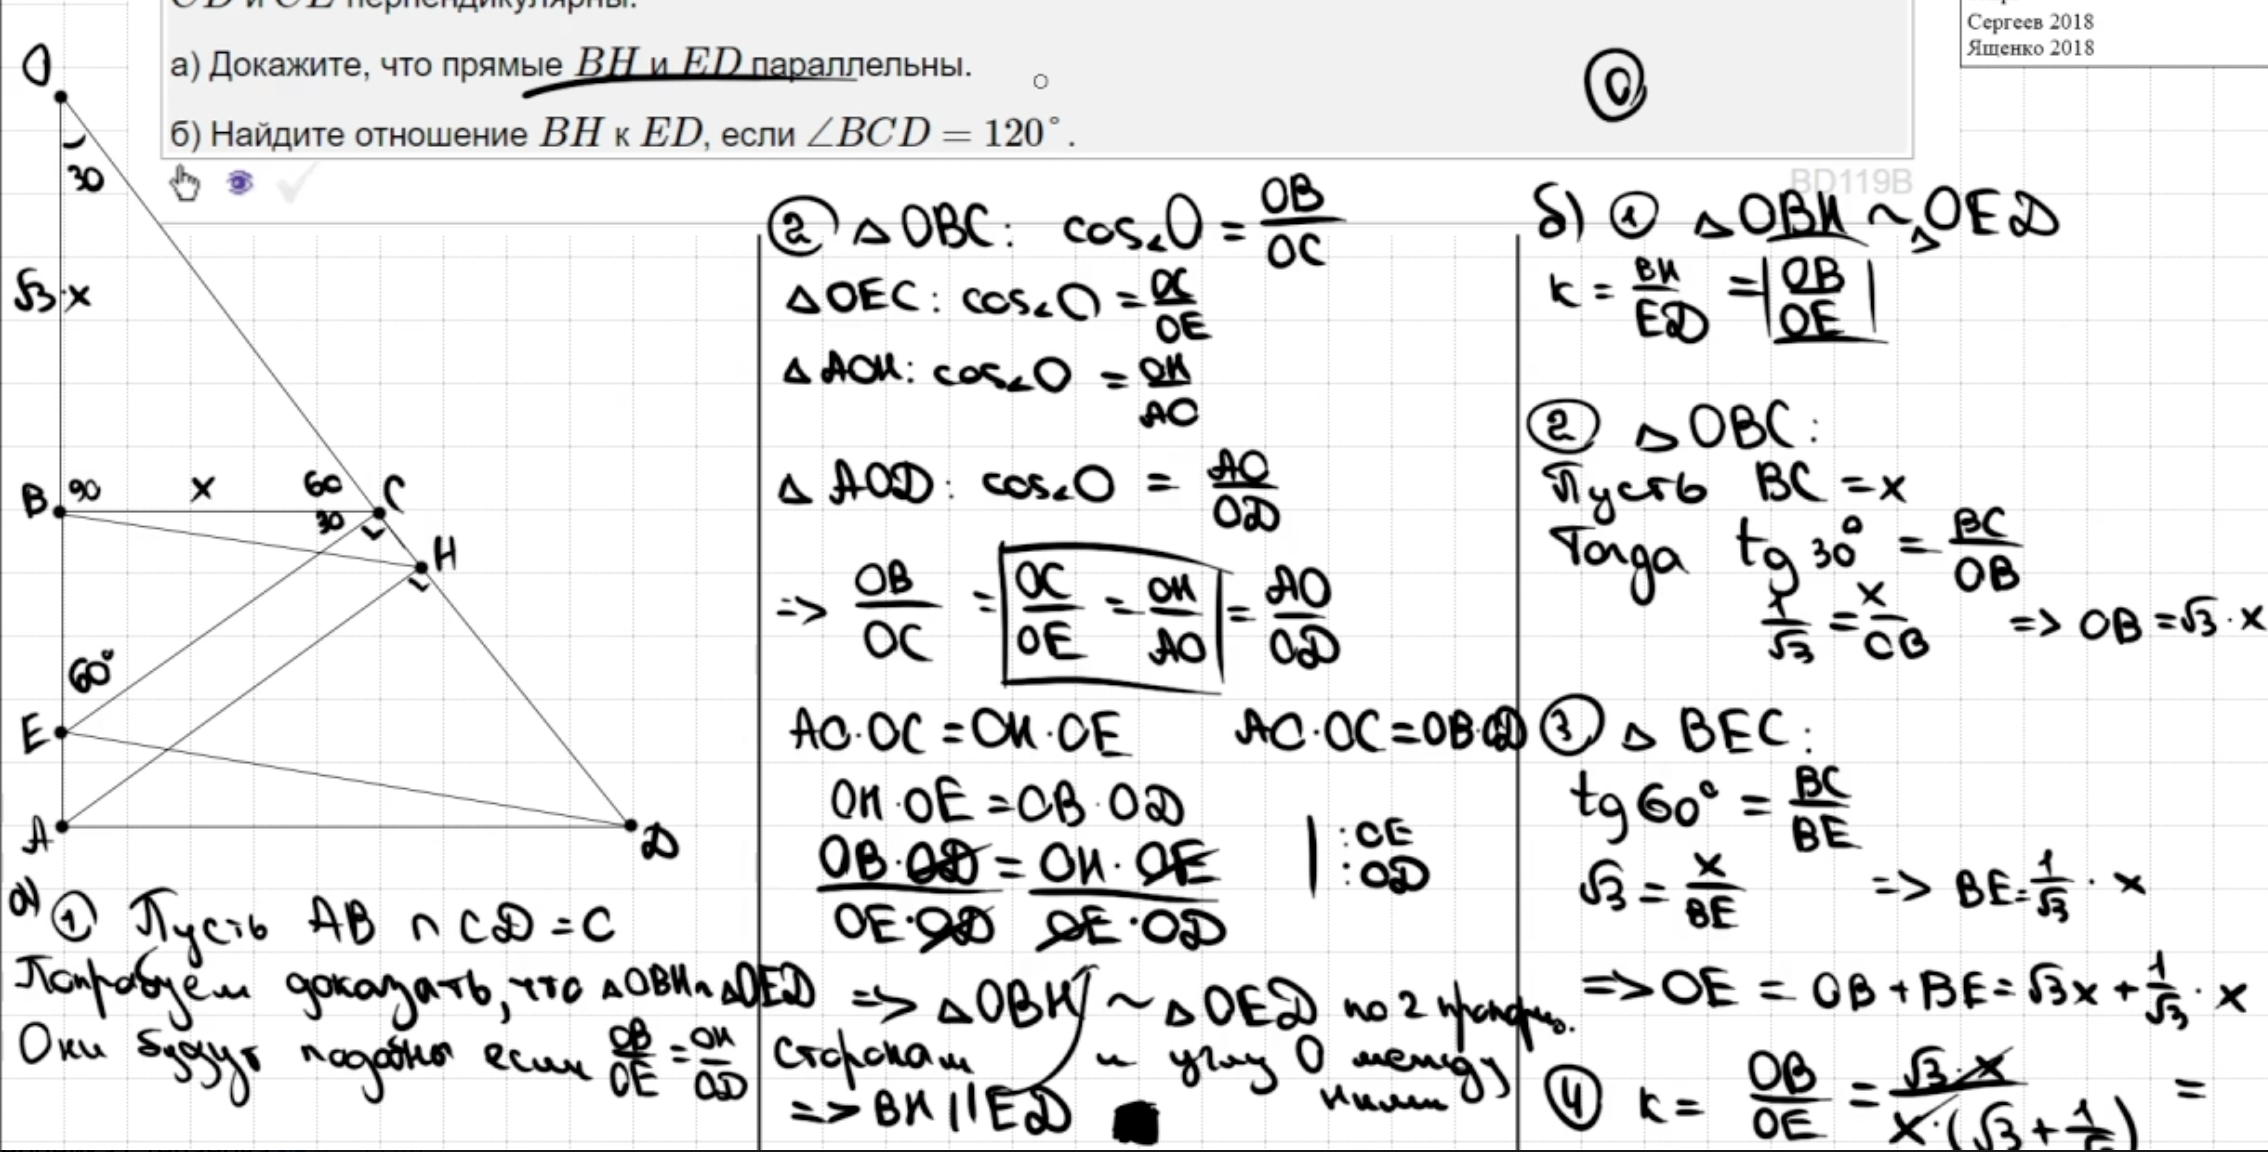 CD и CE перпендикулярны.
а) Докажите, что прямые BH и ED параллельны.
б) Найдите отношение BH к ED, если ∠BCD = 120°.
Сергеев 2018
Ященко 2018
BD119B
O
30
√3·x
B 90 x 60 C
30
H
60°
E
A
D
а) ① Пусть AB ∩ CD = C
Попробуем доказать, что △OBH ~ △OED
Они будут подобны если OB/OE = OH/OD
② △OBC: cos∠O = OB/OC
△OEC: cos∠O = OC/OE
△AOH: cos∠O = OH/AO
△AOD: cos∠O = AO/OD
=> OB/OC = OC/OE = OH/AO = AO/OD
AO·OC = OH·OE AO·OC = OB·OD
OH·OE = OB·OD | :OE :OD
OB·OD/OE·OD = OH·OE/OE·OD
=> △OBH ~ △OED по 2 пропорц.
сторонам и углу O между
ними
=> BH || ED
б) ① △OBH ~ △OED
k = BH/ED = |OB/OE|
② △OBC:
Пусть BC = x
Тогда tg 30° = BC/OB
1/√3 = x/OB => OB = √3·x
③ △BEC:
tg 60° = BC/BE
√3 = x/BE => BE = 1/√3 · x
=> OE = OB + BE = √3x + 1/√3 · x
④ k = OB/OE = √3·x/x·(√3 + 1/√3) =